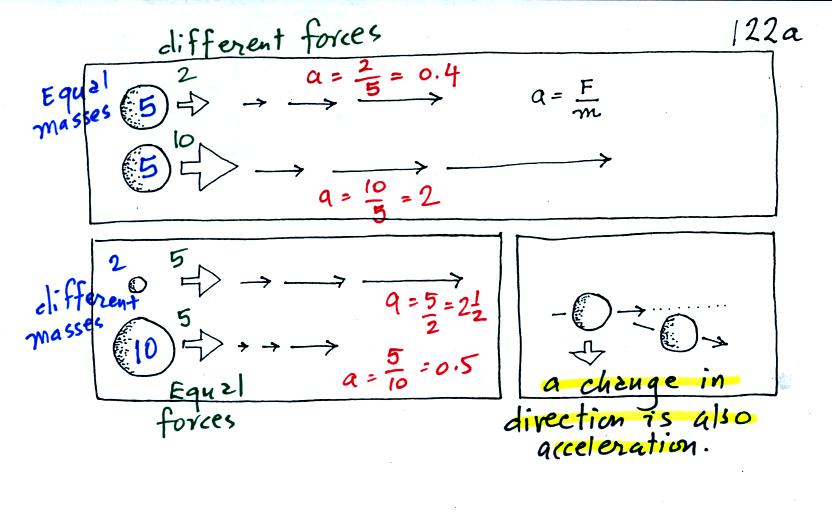 122a
different forces
Equal
masses
2
5
a = 2/5 = 0.4
a = F/m
10
5
a = 10/5 = 2
different
masses
2
5
a = 5/2 = 2 1/2
10
5
a = 5/10 = 0.5
Equal
forces
a change in
direction is also
acceleration.